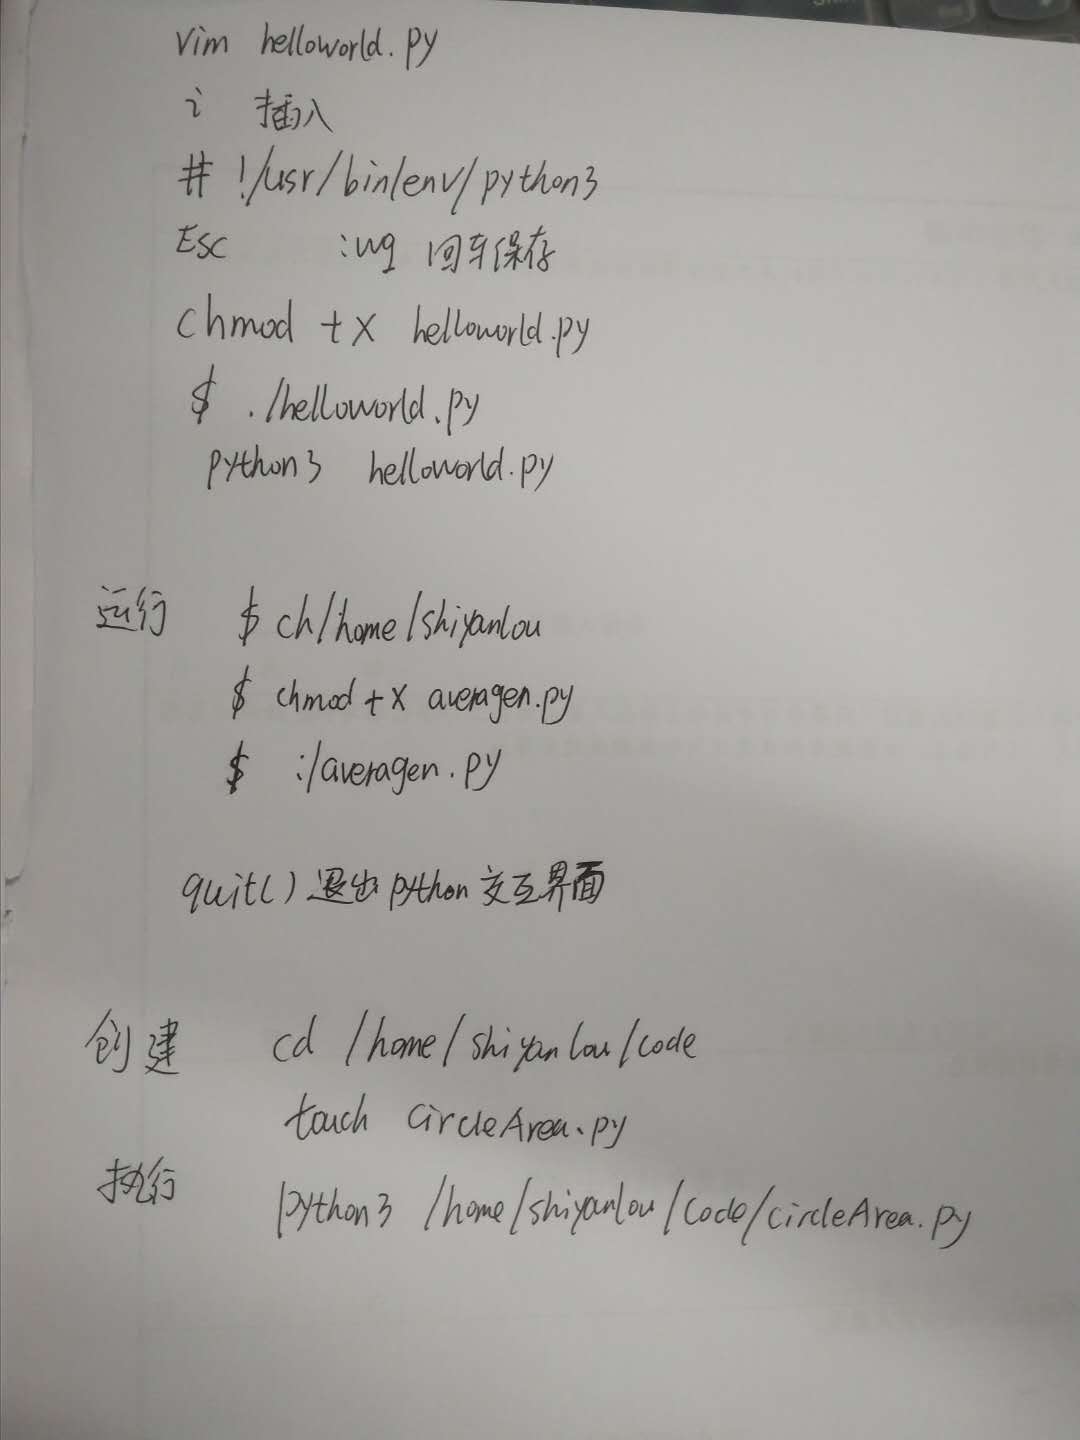 vim helloworld.py
i 插入
# !/usr/bin/env/python3
Esc :wq 回车保存
chmod +x helloworld.py
$ ./helloworld.py
python3 helloworld.py
运行 $ ch/home/shiyanlou
$ chmod +x averagen.py
$ :/averagen.py
quit() 退出 python 交互界面
创建 cd /home/shiyanlou/code
touch circleArea.py
执行 python3 /home/shiyanlou/code/circleArea.py